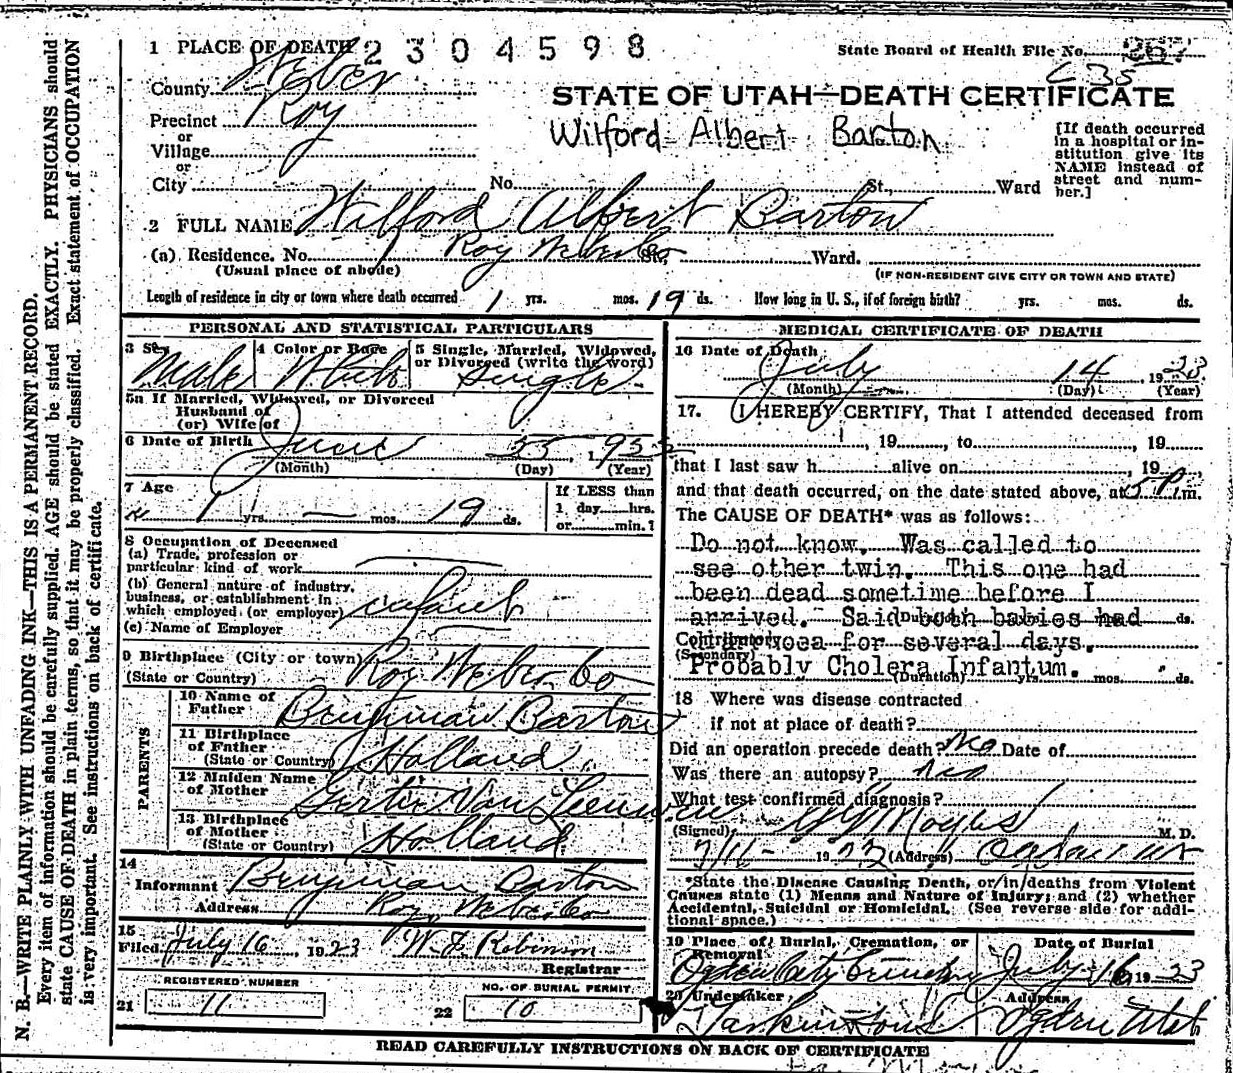 1 PLACE OF DEATH 2304598 State Board of Health File No.
County Weber C 35
STATE OF UTAH—DEATH CERTIFICATE
Precinct Roy
or
Village
or
City No. St., Ward
Wilford Albert Barton
[If death occurred
in a hospital or in-
stitution give its
NAME instead of
street and num-
ber.]
2 FULL NAME Wilford Albert Barton
(a) Residence. No. Roy Weber Co St., Ward.
(Usual place of abode) (IF NON-RESIDENT GIVE CITY OR TOWN AND STATE)
Length of residence in city or town where death occurred 1 yrs. mos. 19 ds. How long in U. S., if of foreign birth? yrs. mos. ds.
PERSONAL AND STATISTICAL PARTICULARS
3 Sex 4 Color or Race 5 Single, Married, Widowed,
or Divorced (write the word)
Male White Single
5a If Married, Widowed, or Divorced
Husband of
(or) Wife of
6 Date of Birth June 1
(Month) (Day) (Year)
7 Age If LESS than
1 yrs. — mos. 19 ds. 1 day hrs.
or min.?
8 Occupation of Deceased
(a) Trade, profession or
particular kind of work
(b) General nature of industry,
business, or establishment in
which employed (or employer) infant
(c) Name of Employer
9 Birthplace (City or town) Roy Weber Co
(State or Country)
PARENTS
10 Name of
Father Barton
11 Birthplace
of Father Holland
(State or Country)
12 Maiden Name
of Mother Gertie Van Leeuwen
13 Birthplace
of Mother Holland
(State or Country)
14
Informant Barton
Address Roy, Weber Co
15
Filed July 16, 1923 W. Robinson
Registrar
REGISTERED NUMBER NO. OF BURIAL PERMIT
21 11 22 10
MEDICAL CERTIFICATE OF DEATH
16 Date of Death
July 14, 1923
(Month) (Day) (Year)
17. I HEREBY CERTIFY, That I attended deceased from
, 19 , to , 19
that I last saw h alive on , 19
and that death occurred, on the date stated above, at 5 P. m.
The CAUSE OF DEATH* was as follows:
Do not know. Was called to
see other twin. This one had
been dead sometime before I
arrived. Said both babies had
(Duration) ds.
Contributory
diarrhoea for several days.
(Secondary)
Probably Cholera Infantum.
(Duration) yrs. mos. ds.
18 Where was disease contracted
if not at place of death?
Did an operation precede death? No Date of
Was there an autopsy? No
What test confirmed diagnosis?
(Signed) Moyes M. D.
, 1923 (Address) Ogden Ut
*State the Disease Causing Death, or in deaths from Violent
Causes state (1) Means and Nature of Injury; and (2) whether
Accidental, Suicidal or Homicidal. (See reverse side for addi-
tional space.)
19 Place of Burial, Cremation, or
Removal Date of Burial
Ogden City Cemetery July 16 1923
20 Undertaker, Address
Larkin & Sons Ogden Utah
READ CAREFULLY INSTRUCTIONS ON BACK OF CERTIFICATE
N. B.—WRITE PLAINLY WITH UNFADING INK—THIS IS A PERMANENT RECORD.
Every item of information should be carefully supplied. AGE should be stated EXACTLY. PHYSICIANS should
state CAUSE OF DEATH in plain terms, so that it may be properly classified. Exact statement of OCCUPATION
is very important. See instructions on back of certificate.